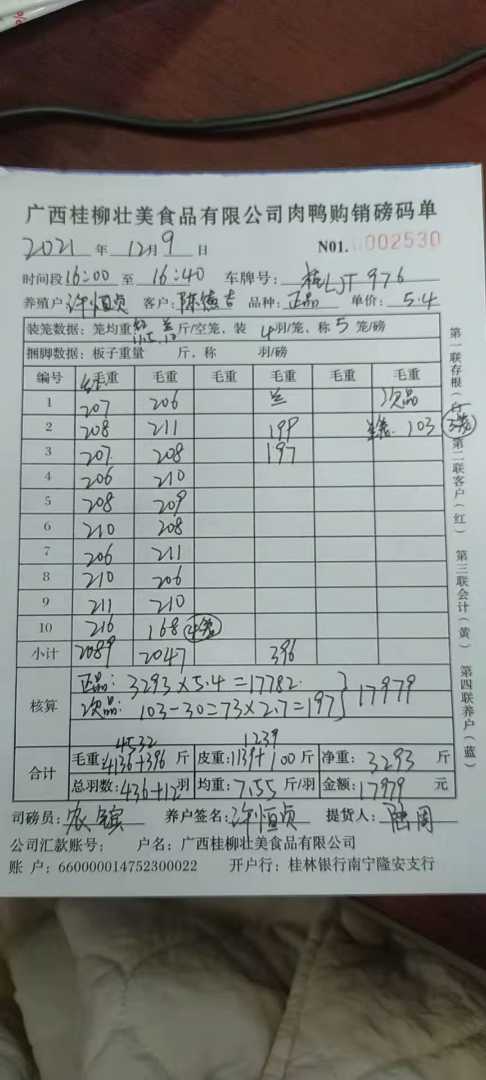 广西桂柳壮美食品有限公司肉鸭购销磅码单
2021 年 12月 9 日 N01. 002530
时间段 16:00 至 16:40 车牌号: 桂LJT976
养殖户 许恒贞 客户: 陈德吉 品种: 正品 单价: 5.4
装笼数据: 笼均重 斤/空笼, 装 4 羽/笼, 称 5 笼/磅
捆脚数据: 板子重量 斤, 称 羽/磅
编号 毛重 毛重 毛重 毛重 毛重 毛重
1 207 206 兰 次品
2 208 211 199 103
3 207 208 197
4 206 210
5 208 209
6 210 208
7 206 211
8 210 206
9 211 210
10 216 168 4笼
小计 2089 2047 396
核算 正品: 3293×5.4=17782
次品: 103-30=73×2.7=197 } 17979
4532 1239
合计 毛重: 4136+396 斤 皮重: 1139+100 斤 净重: 3293 斤
总羽数: 436+12 羽 均重: 7.55 斤/羽 金额: 17979 元
司磅员: 农 养户签名: 许恒贞 提货人:
公司汇款账号: 户名: 广西桂柳壮美食品有限公司
账 户: 660000014752300022 开户行: 桂林银行南宁隆安支行
第一联存根(白) 第二联客户(红) 第三联会计(黄) 第四联养户(蓝)